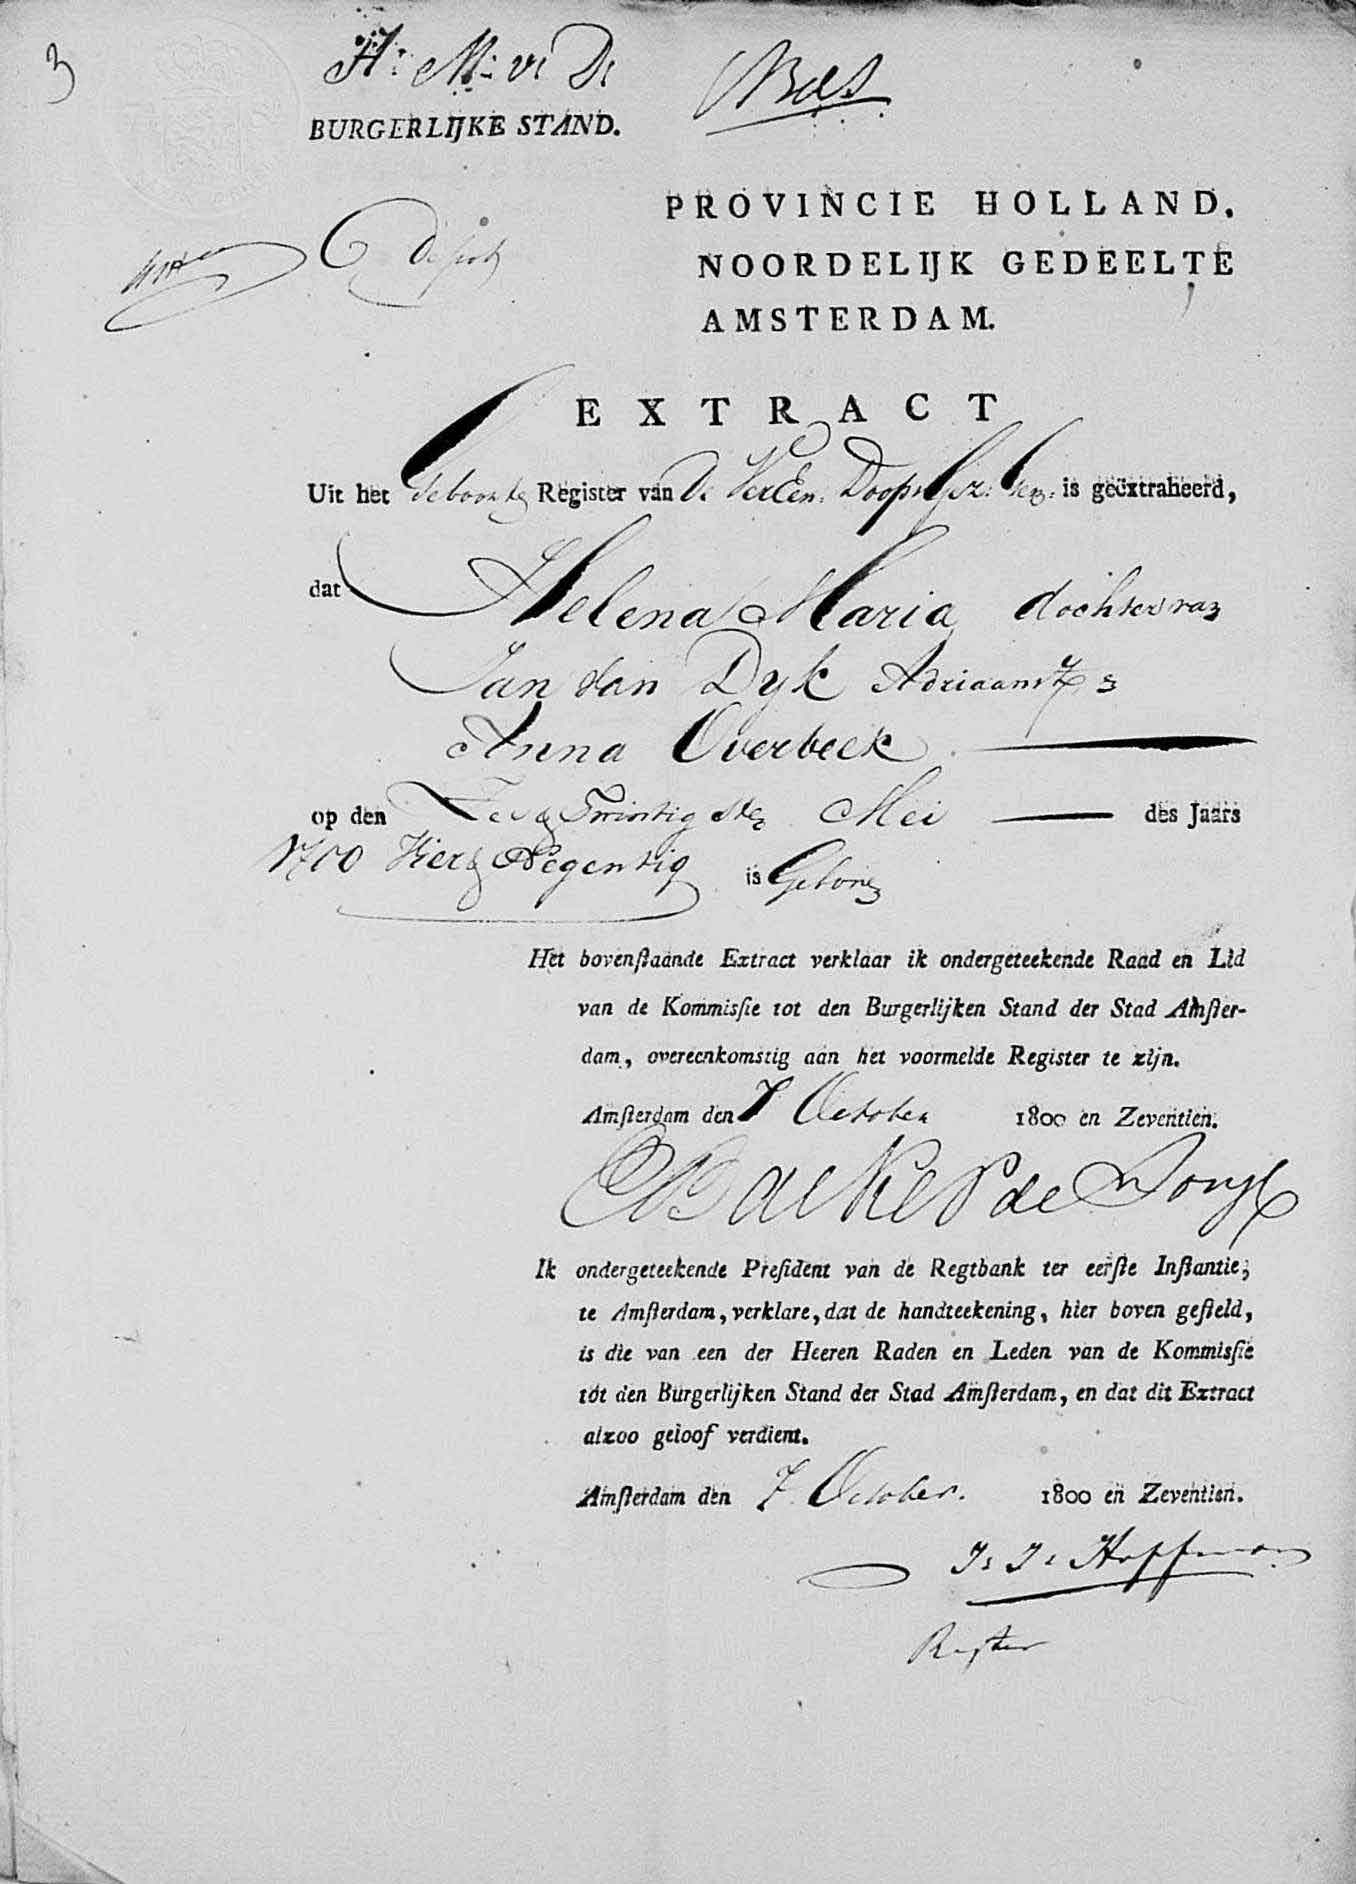 3
H: M: v: D:
BURGERLIJKE STAND.
PROVINCIE HOLLAND,
NOORDELIJK GEDEELTE
AMSTERDAM.
EXTRACT
Uit het Geboorte Register van De Vereen: Doopsgez: Gem: is geëxtraheerd,
dat Helena Maria dochter van
Jan van Dyk Adriaansz en
Anna Overbeek
op den Twintigste Mei des Jaars
1700 Vier en Negentig is Geboren
Het bovenstaande Extract verklaar ik ondergeteekende Raad en Lid
van de Kommissie tot den Burgerlijken Stand der Stad Amster-
dam, overeenkomstig aan het voormelde Register te zijn.
Amsterdam den 7 October 1800 en Zeventien.
Backer de Jonge
Ik ondergeteekende President van de Regtbank ter eerste Instantie,
te Amsterdam, verklare, dat de handteekening, hier boven gesteld,
is die van een der Heeren Raden en Leden van de Kommissie
tot den Burgerlijken Stand der Stad Amsterdam, en dat dit Extract
alzoo geloof verdient.
Amsterdam den 7. October. 1800 en Zeventien.
J: J: Hoffman
Regter